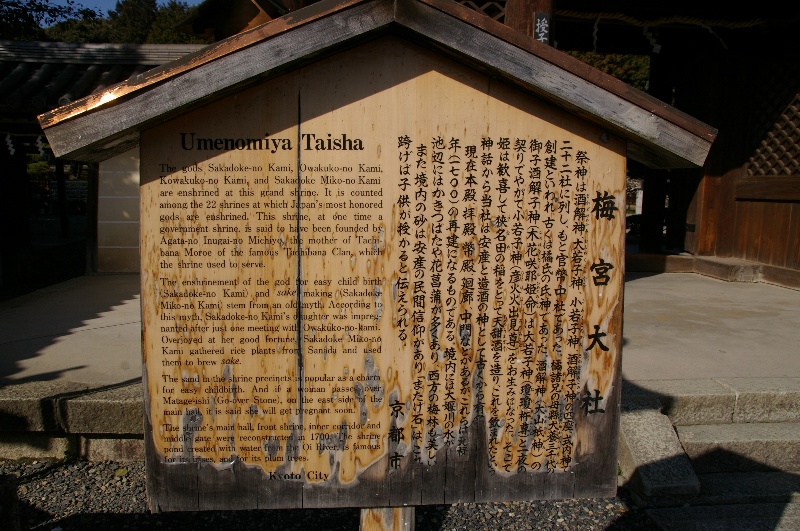 授子
Umenomiya Taisha
The gods Sakadoke-no Kami, Owakuko-no Kami,
Kowakuko-no Kami, and Sakadoke Miko-no Kami
are enshrined at this grand shrine. It is counted
among the 22 shrines at which Japan's most honored
gods are enshrined. This shrine, at one time a
government shrine, is said to have been founded by
Agata-no Inugai-no Michiyo, the mother of Tachi-
bana Moroe of the famous Tachibana Clan, which
the shrine used to serve.
The enshrinement of the god for easy child birth
(Sakadoke-no Kami) and sake making (Sakadoke
Miko-no Kami) stem from an old myth. According to
this myth, Sakadoke-no Kami's daughter was impreg-
nanted after just one meeting with Owakuko-no-kami.
Overjoyed at her good fortune, Sakadoke Miko-no
Kami gathered rice plants from Sanada and used
them to brew sake.
The sand in the shrine precincts is popular as a charm
for easy childbirth. And if a woman passes over
Matage-ishi (Go-over Stone), on the east side of the
main hall, it is said she will get pregnant soon.
The shrine's main hall, front shrine, inner corridor and
middle gate were reconstructed in 1700. The shrine
pond created with water from the Oi River, is famous
for its irises, and for its plum trees.
Kyoto City
梅宮大社
祭神は酒解神、大若子神、小若子神、酒解子神の四座で、式内神
二十二社に列し、もと官幣中社であった。橘諸兄の母縣犬養三千代の
創建といわれ、古くは橘氏の氏神であった。酒解神(大山祇神)の
御子酒解子神(木花咲耶姫命)は大若子神(瓊瓊杵尊)と一夜の
契りでやがて小若子神(彦火火出見尊)をお生みになった。そこで
姫は歓喜して、狭名田の稲をとって大甜酒を造り、これを飲まれたという
神話から当社は安産と造酒の神として古くから有名である。
現在本殿、拝殿、幣殿、廻廊、中門などがあるが、これらは元禄十三
年(一七〇〇)の再建になるものである。境内には大堰川の水を
池辺にはかきつばたや花菖蒲が多くあり、西方の梅林も美しい。
また境内の砂は安産の民間信仰があり、「またげ石」は、これを
跨げば子供が授かると伝えられる。
京都市